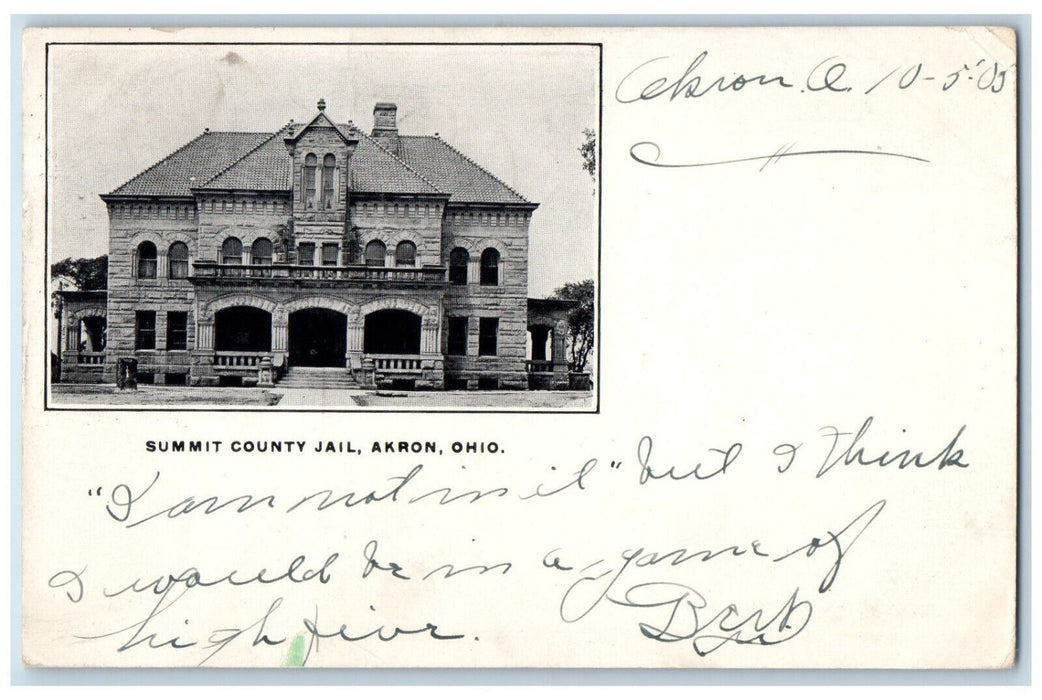 Akron. O. 10-5-'05
SUMMIT COUNTY JAIL, AKRON, OHIO.
"I am not in it" but I think
I would be in a game of
high five. Bert